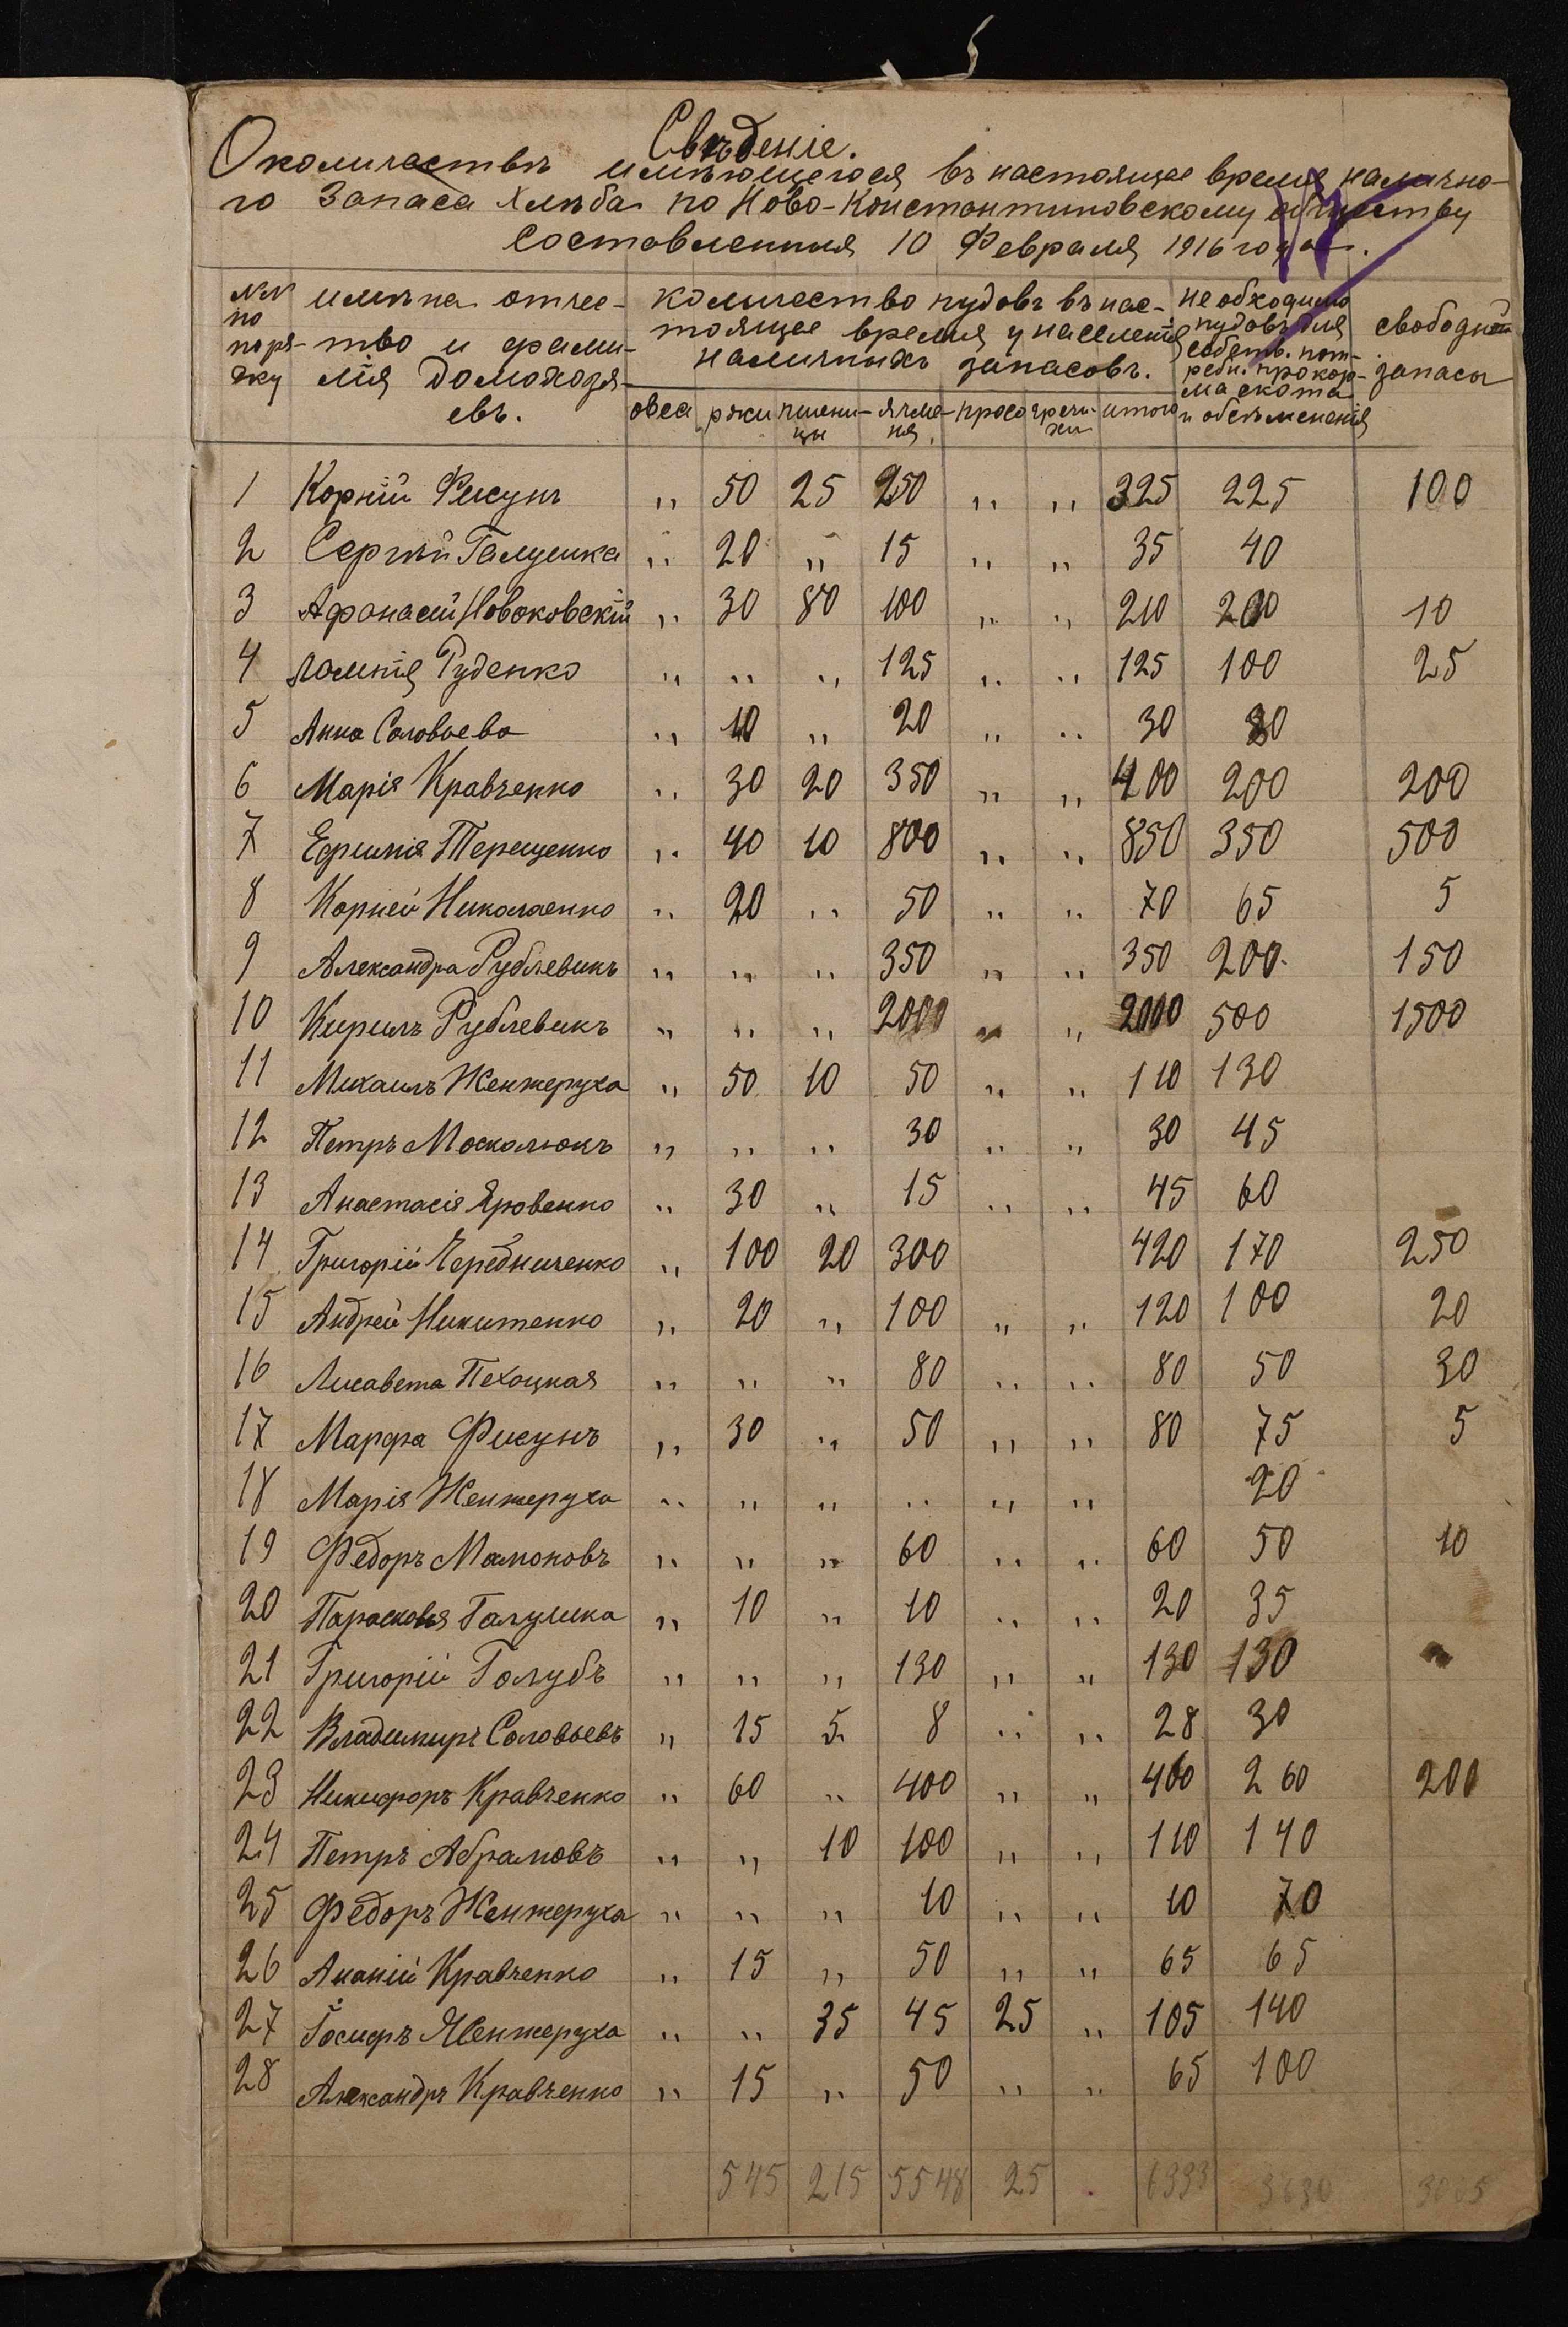 Свѣдение.
О количествѣ имѣющегося въ настоящее время налично-
го запаса хлѣба по Ново-Константиновскому обществу
составленния 10 Февраля 1916 года.
№№ по поря-дку | имѣна отчес-тво и фами-лія домохозя-евъ. | количество пудовъ въ нас-тоящее время у населенія наличныхъ запасовъ. | необходимо пудовъ для собств. пот-ребн. прокор-ма скота и обсѣменения | свободный запасы
овса | ржи | пшени-цы | ячме-ня | просо | гречи-хи | итого
1 Корній Фисунъ " 50 25 250 " " 325 225 100
2 Сергѣй Галушка " 20 " 15 " " 35 40
3 Афонасій Новаковскій " 30 80 100 " " 210 200 10
4 Руденко " " " 125 " " 125 100 25
5 Анна Соловьева " 10 " 20 " " 30 30
6 Марія Кравченко " 30 20 350 " " 400 200 200
7 Ефимія Терещенко " 40 10 800 " " 850 350 500
8 Корней Николаенко " 20 " 50 " " 70 65 5
9 Александра Рублевикъ " " " 350 " " 350 200 150
10 Кирилъ Рублевикъ " " " 2000 " " 2000 500 1500
11 Михаилъ Женжеруха " 50 10 50 " " 110 130
12 Петръ Москалюкъ " " " 30 " " 30 45
13 Анастасія Яровенко " 30 " 15 " " 45 60
14 Григорій Чередниченко " 100 20 300 420 170 250
15 Андрей Никитенко " 20 " 100 " " 120 100 20
16 Лисавета Пехоцкая " " " 80 " " 80 50 30
17 Марфа Фисунъ " 30 " 50 " " 80 75 5
18 Марія Женжеруха " " " " " " 20
19 Федоръ Мамоновъ " " " 60 " " 60 50 10
20 Парасковья Галушка " 10 " 10 " " 20 35
21 Григорій Голубъ " " " 130 " " 130 130
22 Владимиръ Соловьевъ " 15 5 8 " " 28 30
23 Никифоръ Кравченко " 60 " 400 " " 460 260 200
24 Петръ Абрамовъ " " 10 100 " " 110 140
25 Федоръ Женжеруха " " " 10 " " 10 70
26 Ананій Кравченко " 15 " 50 " " 65 65
27 Іосифъ Женжеруха " " 35 45 25 " 105 140
28 Александръ Кравченко " 15 " 50 " " 65 100
545 215 5548 25 6333 3630 3005